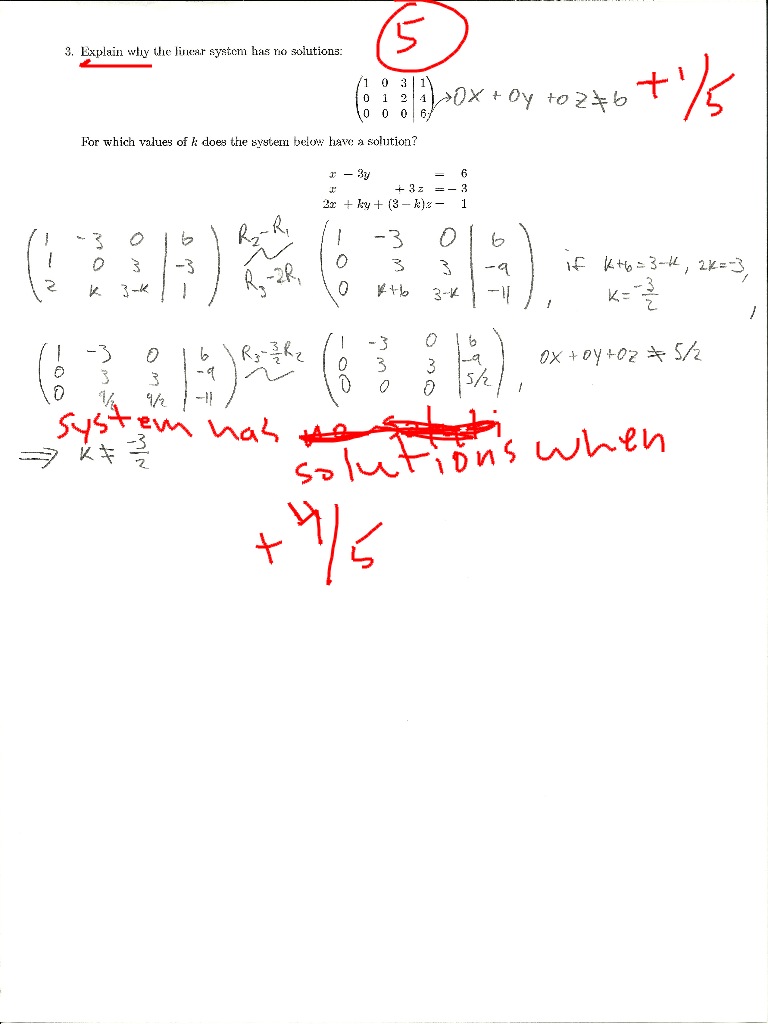 5
3. Explain why the linear system has no solutions:
1 0 3 | 1
0 1 2 | 4
0 0 0 | 6
→ 0x + 0y + 0z ≠ 6
+1/5
For which values of k does the system below have a solution?
x − 3y = 6
x + 3z = − 3
2x + ky + (3 − k)z = 1
1 -3 0 | 6
1 0 3 | -3
2 k 3-k | 1
R2-R1
R3-2R1
1 -3 0 | 6
0 3 3 | -9
0 k+6 3-k | -11
,
if k+6=3-k, 2k=-3,
k=-3/2
,
1 -3 0 | 6
0 3 3 | -9
0 9/2 9/2 | -11
R3-3/2R2
1 -3 0 | 6
0 3 3 | -9
0 0 0 | 5/2
,
0x+0y+0z ≠ 5/2
system has
solutions when
⇒ k ≠ -3/2
+4/5